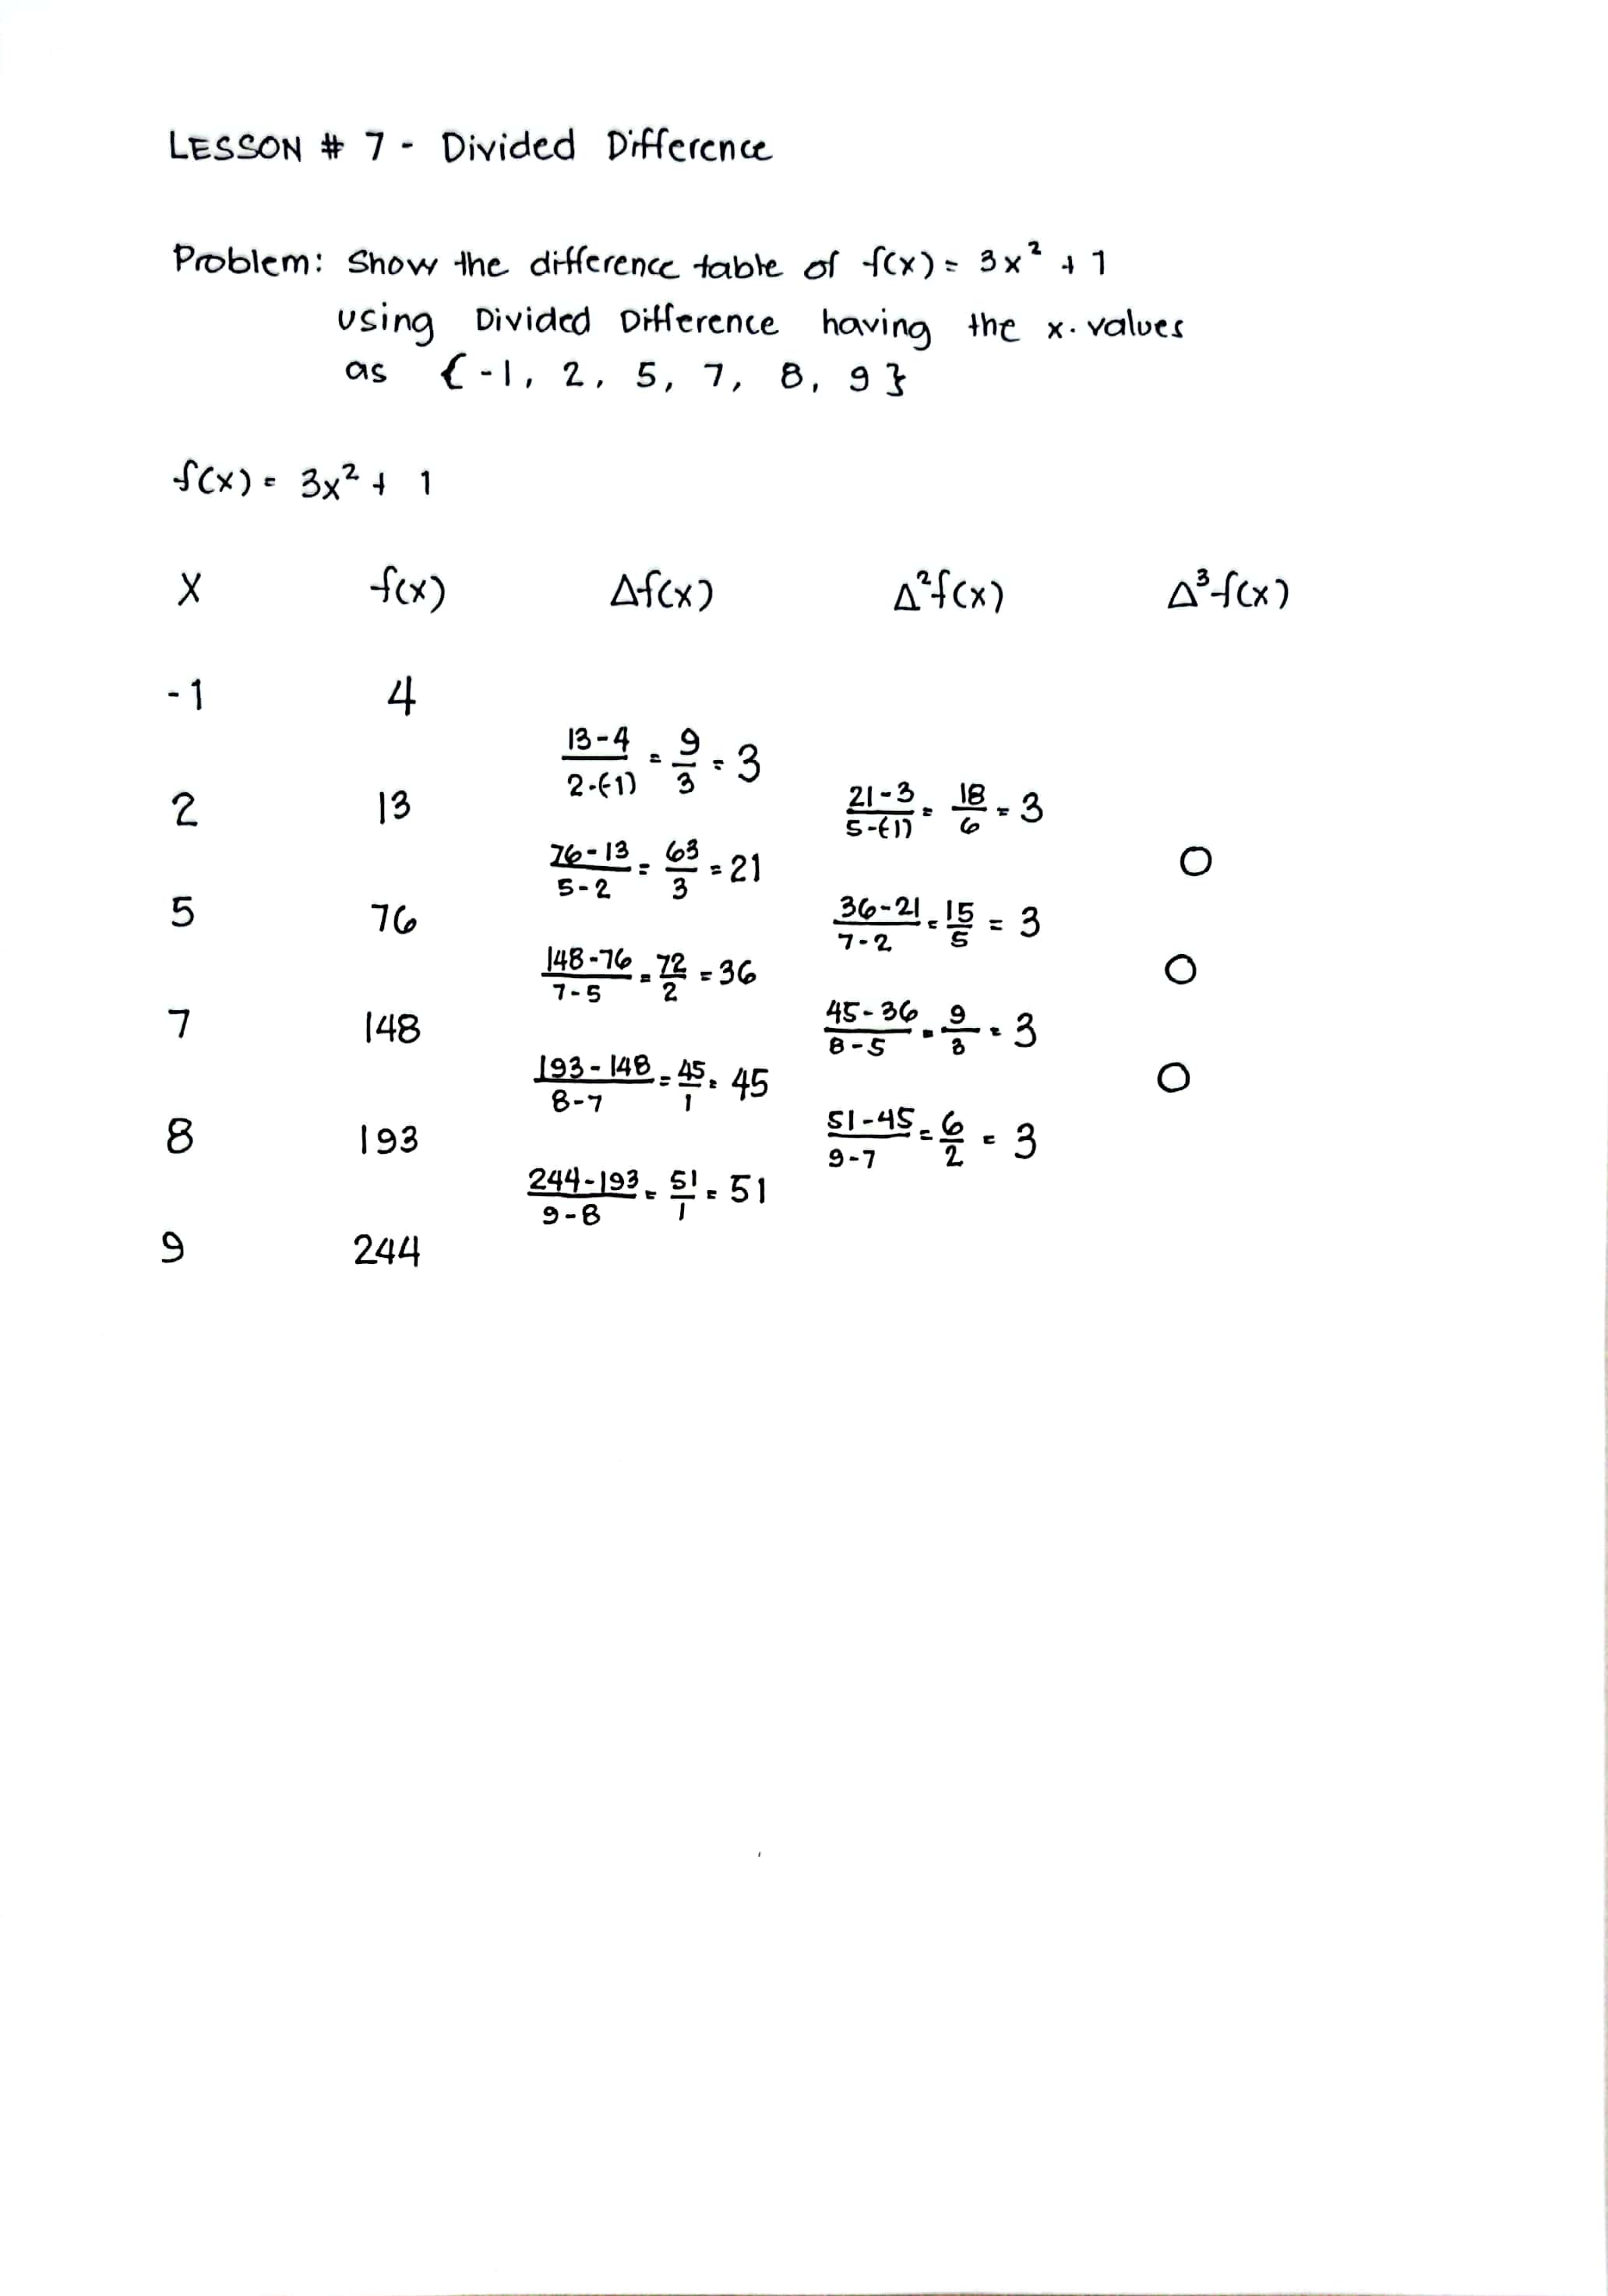 LESSON # 7 - Divided Difference
Problem: Show the difference table of f(x) = 3x² + 1
using Divided Difference having the x-values
as {-1, 2, 5, 7, 8, 9}
f(x) = 3x² + 1
X f(x) Δf(x) Δ²f(x) Δ³f(x)
-1 4
(13-4)/(2-(-1)) = 9/3 = 3
2 13 (21-3)/(5-(-1)) = 18/6 = 3
(76-13)/(5-2) = 63/3 = 21 0
5 76 (36-21)/(7-2) = 15/5 = 3
(148-76)/(7-5) = 72/2 = 36 0
7 148 (45-36)/(8-5) = 9/3 = 3
(193-148)/(8-7) = 45/1 = 45 0
8 193 (51-45)/(9-7) = 6/2 = 3
(244-193)/(9-8) = 51/1 = 51
9 244